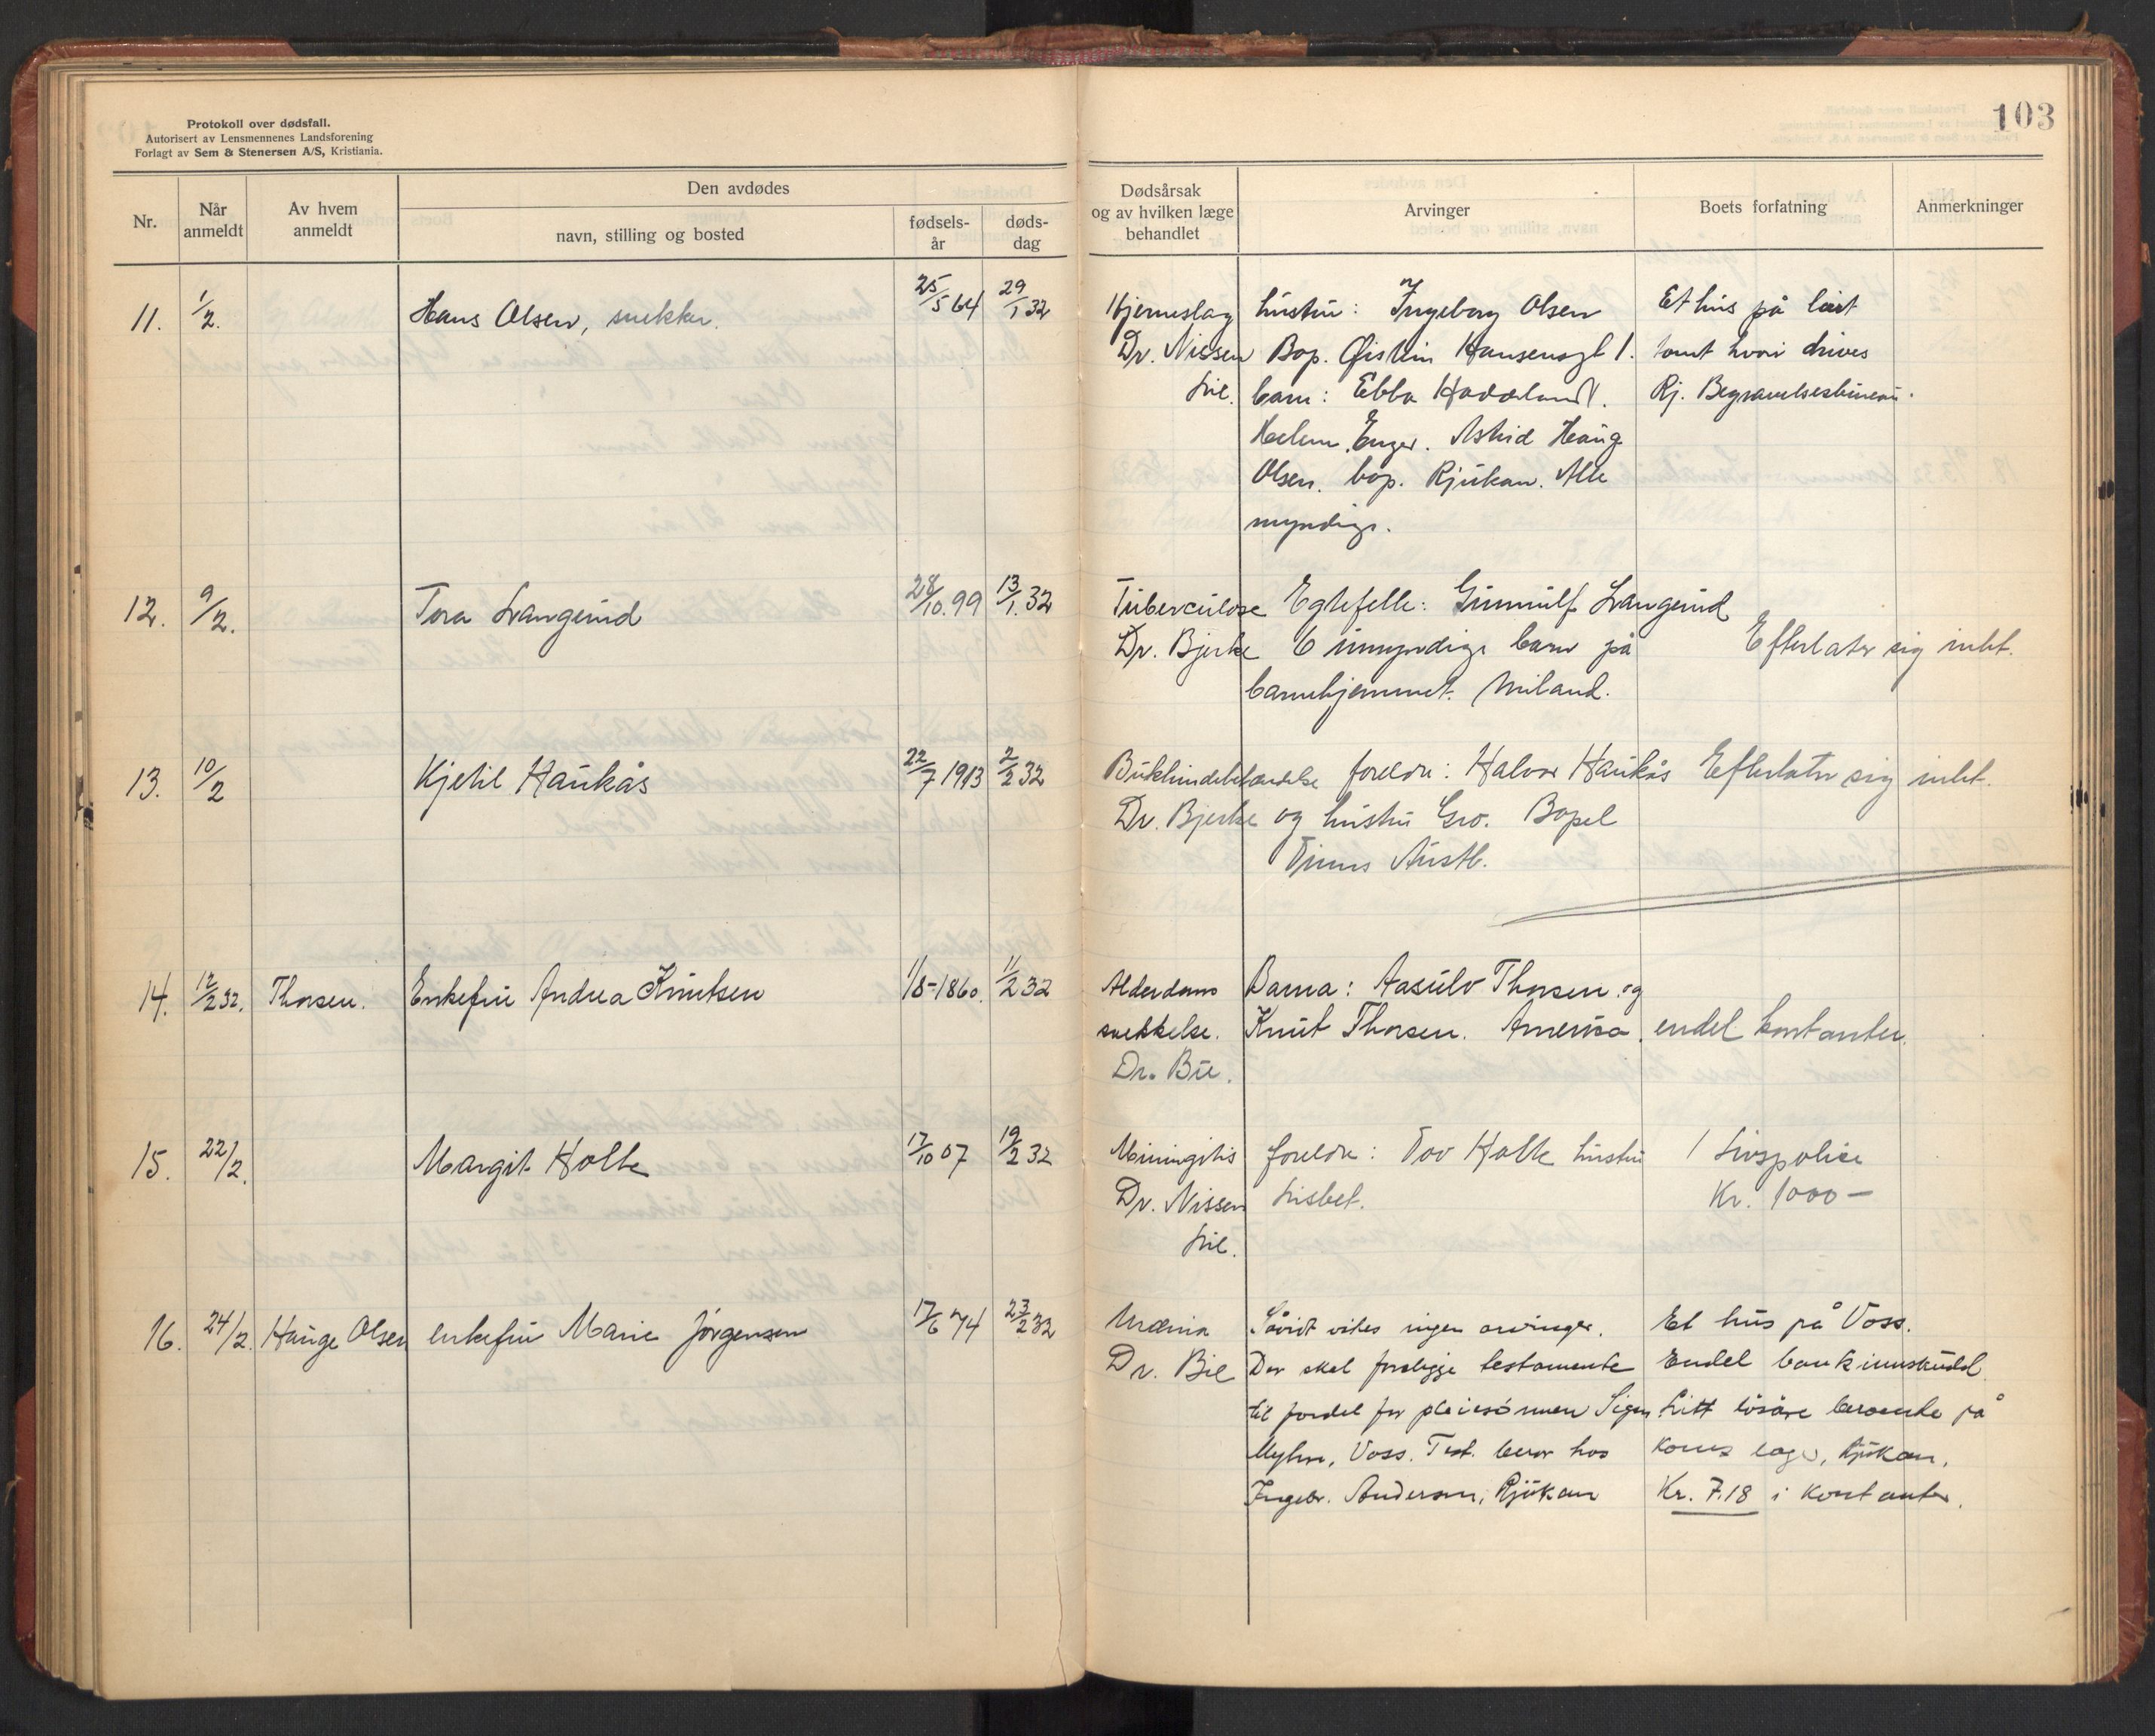 Protokoll over dødsfall.
Autorisert av Lensmennenes Landsforening
Forlagt av Sem & Stenersen A/S, Kristiania.
103
Nr.
Når anmeldt
Av hvem anmeldt
Den avdødes
navn, stilling og bosted
fødsels-år
døds-dag
Dødsårsak og av hvilken læge behandlet
Arvinger
Boets forfatning
Anmerkninger
11. 1/2. Hans Olsen, snekker. 25/5 64 29/1 32
Hjerneslag
Dr. Nissen
Lie.
hustru: Ingeborg Olsen
Bop. Øistein Hansensgt 1.
barn: Ebba Haddeland.
Helene Enger. Astrid Haug
Olsen. bop. Rjukan. Alle
myndige.
Et hus på leiet
tomt hvori drives
Rj. Begravelsesbureau.
12. 9/2. Tora Langerud 28/10.99 13/1.32
Tuberculose
Dr. Bjerke
Egtefelle: Gunnulf Langerud
6 umyndige barn på
barnehjemmet. Miland.
Efterlater sig intet.
13. 10/2 Kjetil Haukås 22/7 1913 2/2 32
Bukhindebetændelse
Dr. Bjerke
foreldre: Halvor Haukås
og hustru Gro. Bopel
Tinns Austb.
Efterlater sig intet.
14. 12/2 32. Thorsen. Enkefru Andrea Knutsen 1/8-1860. 11/2 32
Alderdoms
svekkelse.
Dr. Bie.
Barna: Aasulv Thorsen og
Knut Thorsen. America.
endel kontanter.
15. 22/2. Margit Holte 17/10 07 19/2 32
Miningitis
Dr. Nissen
Lie.
foreldre: Tov Holte hustru
Lisbet.
1 Livspolice
Kr. 1000–
16. 24/2. Hauge Olsen enkefru Marie Jørgensen 17/6 74 23/2 32
Uræmia
Dr. Bie
Såvidt vites ingen arvinger.
Der skal foreligge testamente
til fordel for pleiesønnen Sigm
Myhre, Voss. Test. beror hos
Ingebr. Andersen, Rjukan
Et hus på Voss.
Endel bankinnskudd
Litt løsøre beroende på
Koms lager, Rjukan.
Kr. 7.18 i kontanter.